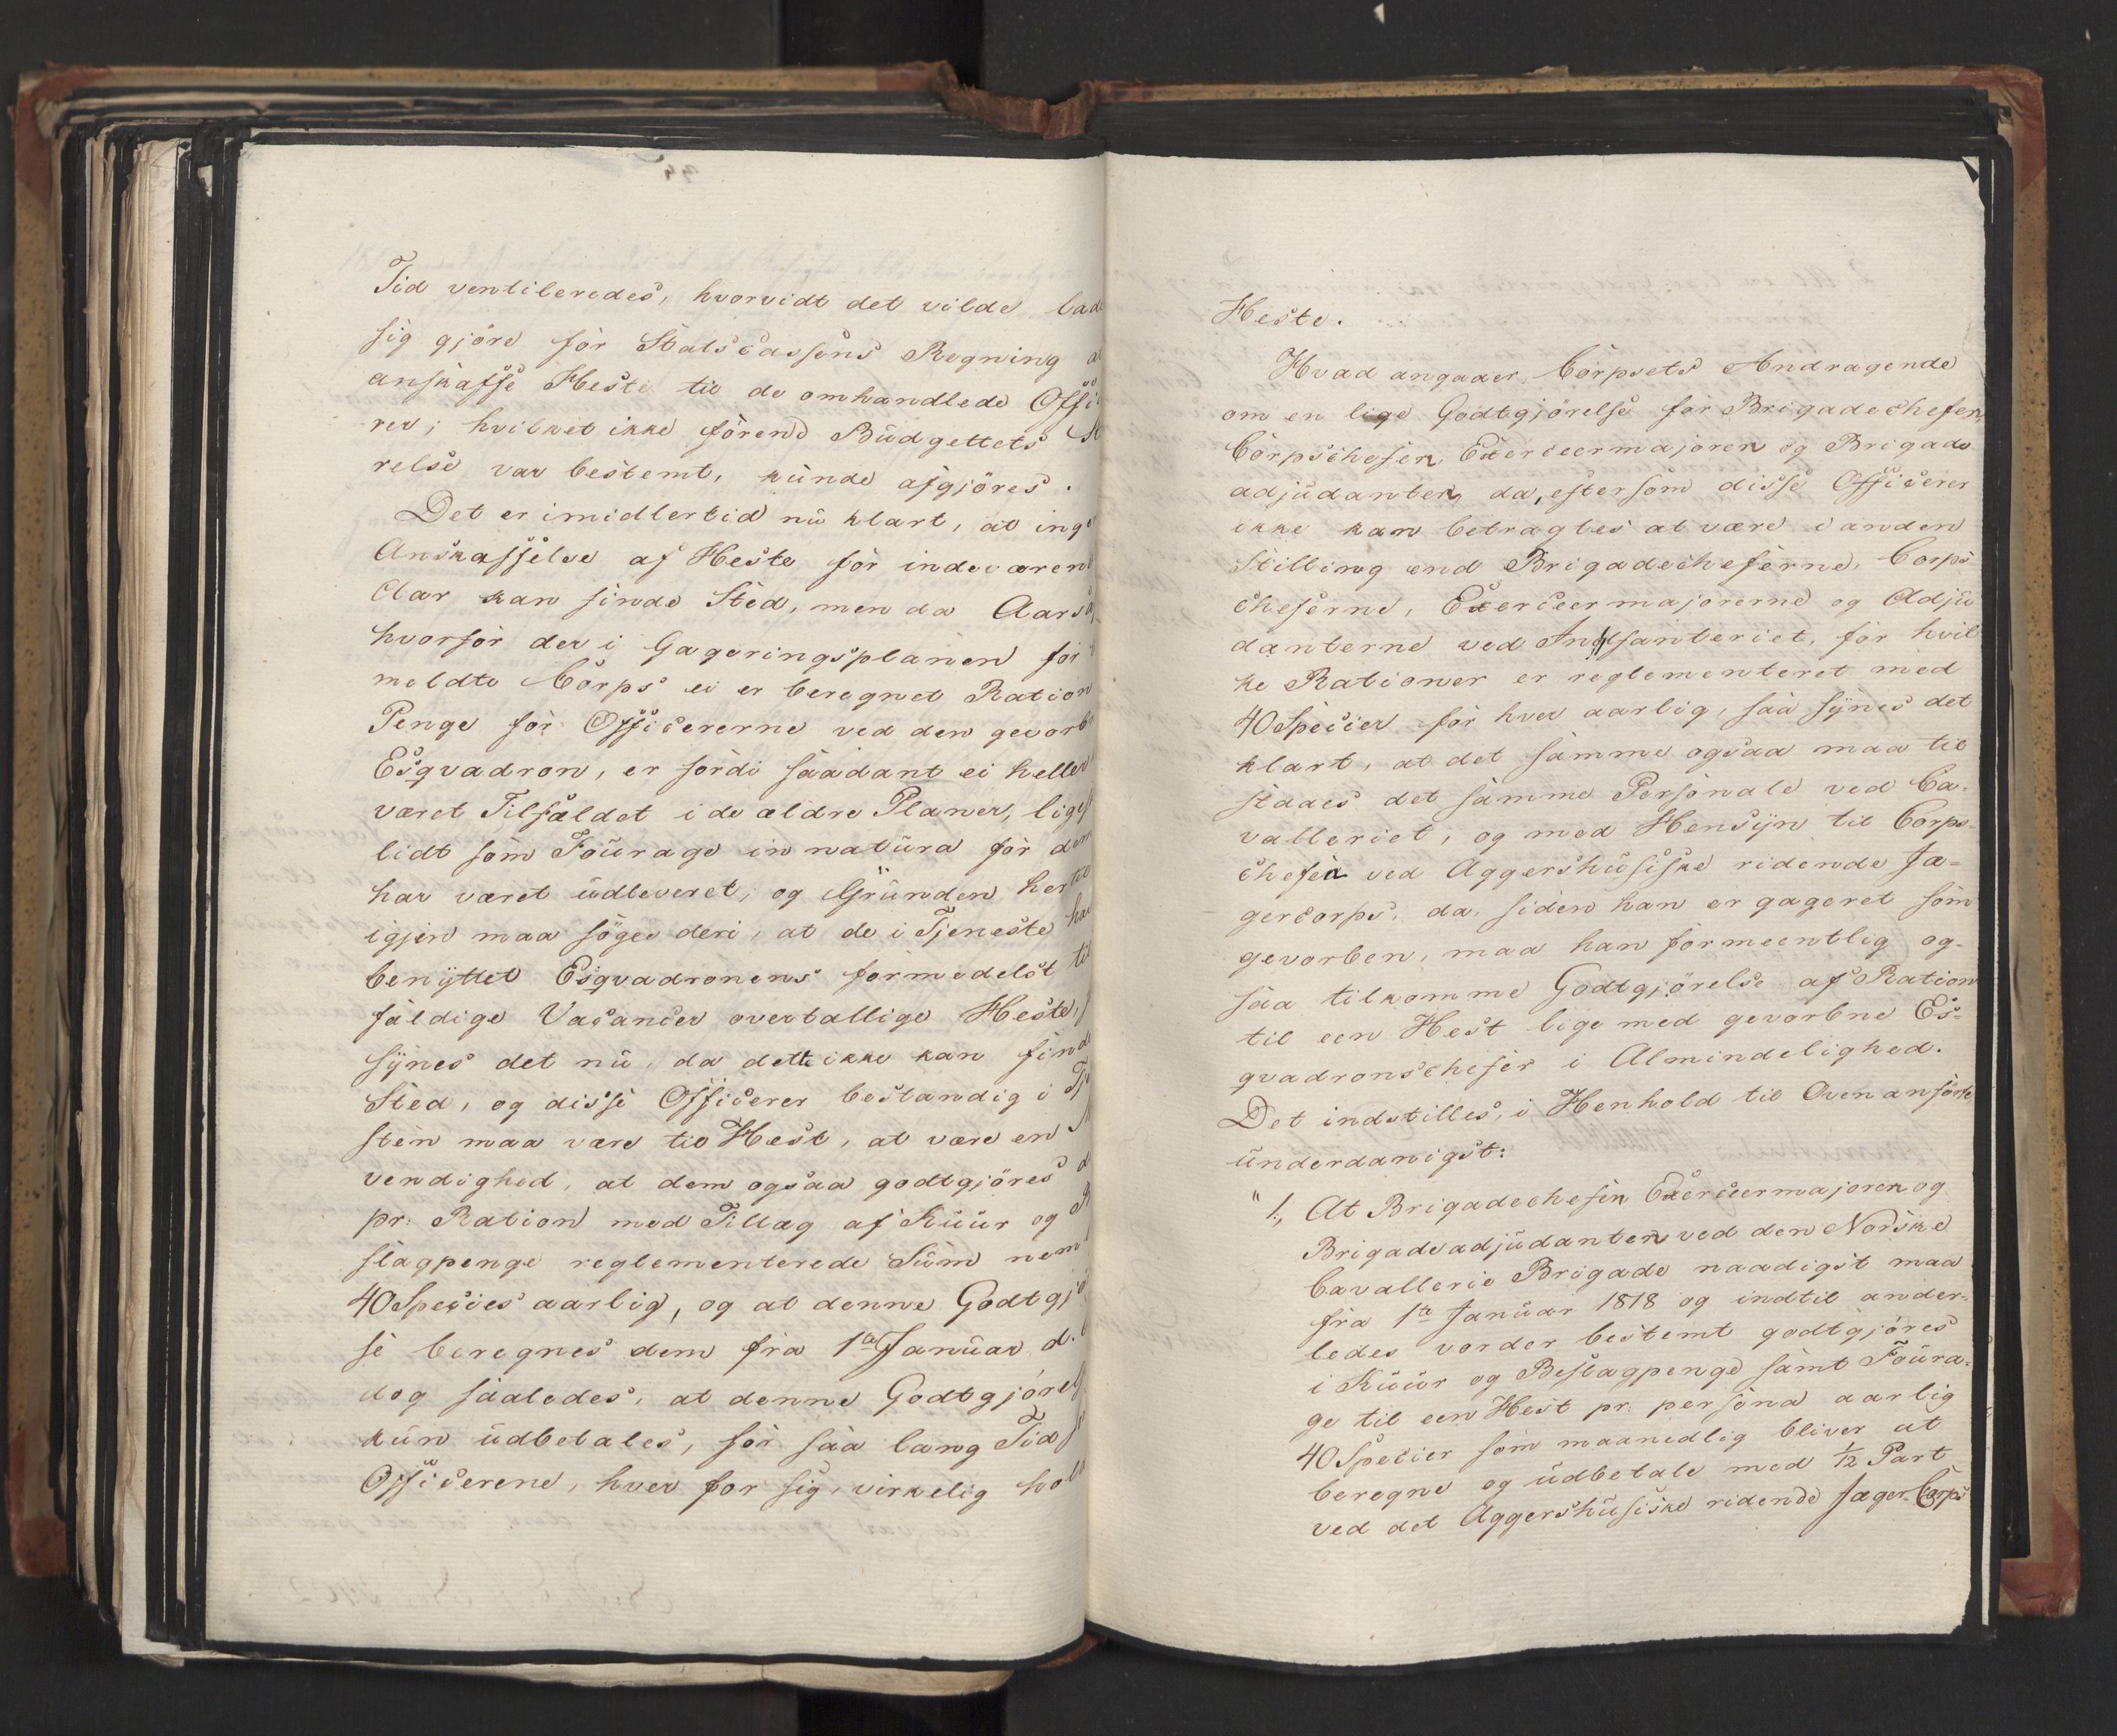 Tid ventileredes, hvorvidt det vilde lade
sig gjöre for Statscassens Regning at
anskaffe Heste til de omhandlede Offi
rer; hvilket ikke förend Budgettets
relse var bestemt, kunde afgjöres.
Det er imidlertid nu klart, at ingen
Anskaffelse af Heste for indeværend
Aar kan finde Sted, men da Aarsa
hvorfor der i Gageringsplanen for
meldte Corps ei er beregnet Ration
Penge for Officererne ved den gevorb
Esqvadron, er fordi saadant ei heller
været Tilfældet i de ældre Planer, liges
lidt som Fourage in natura for dem
har været udleveret, og Grunden hertil
igjen maa söges deri, at de i Tjeneste har
benyttet Esqvadronens formedelst til
fældige Vacancer overtallige Heste,
synes det nu, da dette ikke kan finde
Sted, og disse Officerer bestandig i Tje
sten maa være til Hest, at være en
vendighed, at dem ogsaa godtgjöres d
pr: Ration med Tillæg af Kuur og
slagpenge reglementerede Sum neml
40 Species aarlig, og at denne Godtgjö
se beregnes dem fra 1te Januar d.
dog saaledes, at denne Godtgjörels
kun udbetales, for saa lang Tid
Officerene, hver for sig, virkelig hold
Heste.
Hvad angaaer Corpsets Andragende
om en lige Godtgjörelse for Brigadechefen,
Corpschefen, Exerceermajoren og Brigade
adjudanten, da, eftersom disse Officerer
ikke kan betragtes at være i anden
Stilling end Brigadecheferne, Corps
cheferne, Exerceermajorerne og Adju
danterne ved Infanteriet, for hvil
ke Rationer er reglementeret med
40 Specier for hver aarlig, saa synes det
klart, at det samme ogsaa maa til
staaes det samme Personale ved Ca-
valleriet, og med Hensyn til Corps
chefen ved Aggershusiske ridende Jæ-
gercorps, da, siden han er gageret som
gevorben, maa han formeentlig og-
saa tilkomme Godtgjörelse af Ration
til een Hest lige med gevorbne Es-
qvadronschefer i Almindelighed.
Det indstilles, i Henhold til Ovenanförte,
underdanigst:
" 1, At Brigadechefen Exerceermajoren og
Brigadeadjudanten ved den Norske
Cavallerie Brigade naadigst maa
fra 1te Januar 1818 og indtil ander-
ledes vorder bestemt godtgjöres
i Kuur og Beslagpenge samt Foura-
ge til een Hest pr. persona aarlig
40 Specier som maanedlig bliver at
beregne og udbetale med 1/12 Part
ved det Aggershusiske ridende Jæger-Corps